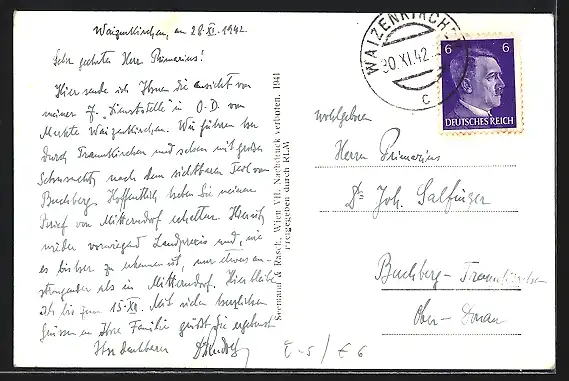 Waizenkirchen, am 28.XI.1942
Sehr geehrter Herr Primarius!
Hier sende ich Ihnen die Ansicht von
meiner z. „Dienststelle" in O.D. vom
Markte Waizenkirchen. Wir fuhren
durch Traunkirchen und sahen mit großer
Sehnsucht nach dem sichtbaren Teil von
Buchberg. Hoffentlich haben Sie meinen
Brief von Mitterndorf erhalten. Hier ist
wieder vorwiegend Landpraxis und, wie
es bisher zu erkennen ist, nur etwas an-
strengender als in Mitterndorf. Hier bleibe
ich bis zum 15.XII. Mit vielen herzlichen
Grüssen an Ihre Familie grüßt Sie ergebenst
Ihr dankbarer
Seemann & Rasch, Wien VII., Nachdruck verboten. 1941
Freigegeben durch RLM
WAIZENKIRCHEN
30.XI.42
c
6 6
DEUTSCHES REICH
Wohlgeboren
Herrn Primarius
Dr. Joh. Salfinger
Buchberg - Traunkirchen
Ober-Donau
E-5/€6